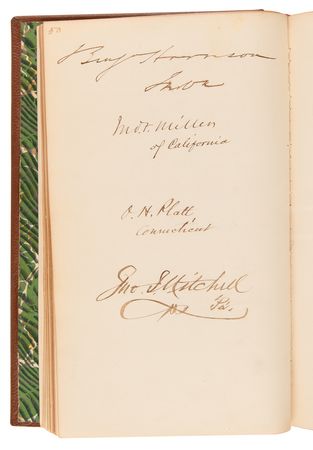 50
Benj Harrison
Inda
Jno. F. Miller
of California
O. H. Platt
Connecticut
Jno I Mitchell
Pa.